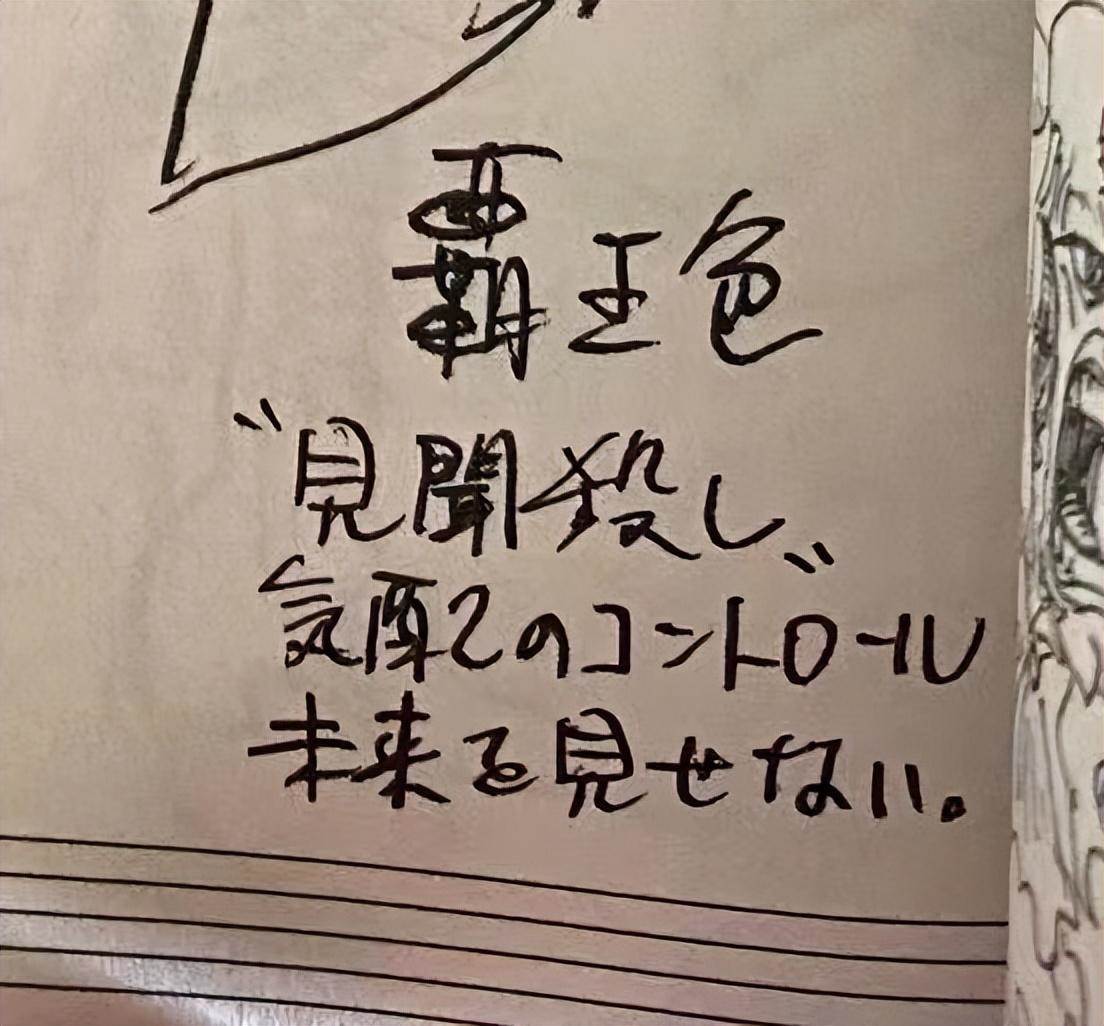 覇王色
"見聞殺し"
気配てのコントロール
未来を見せない。